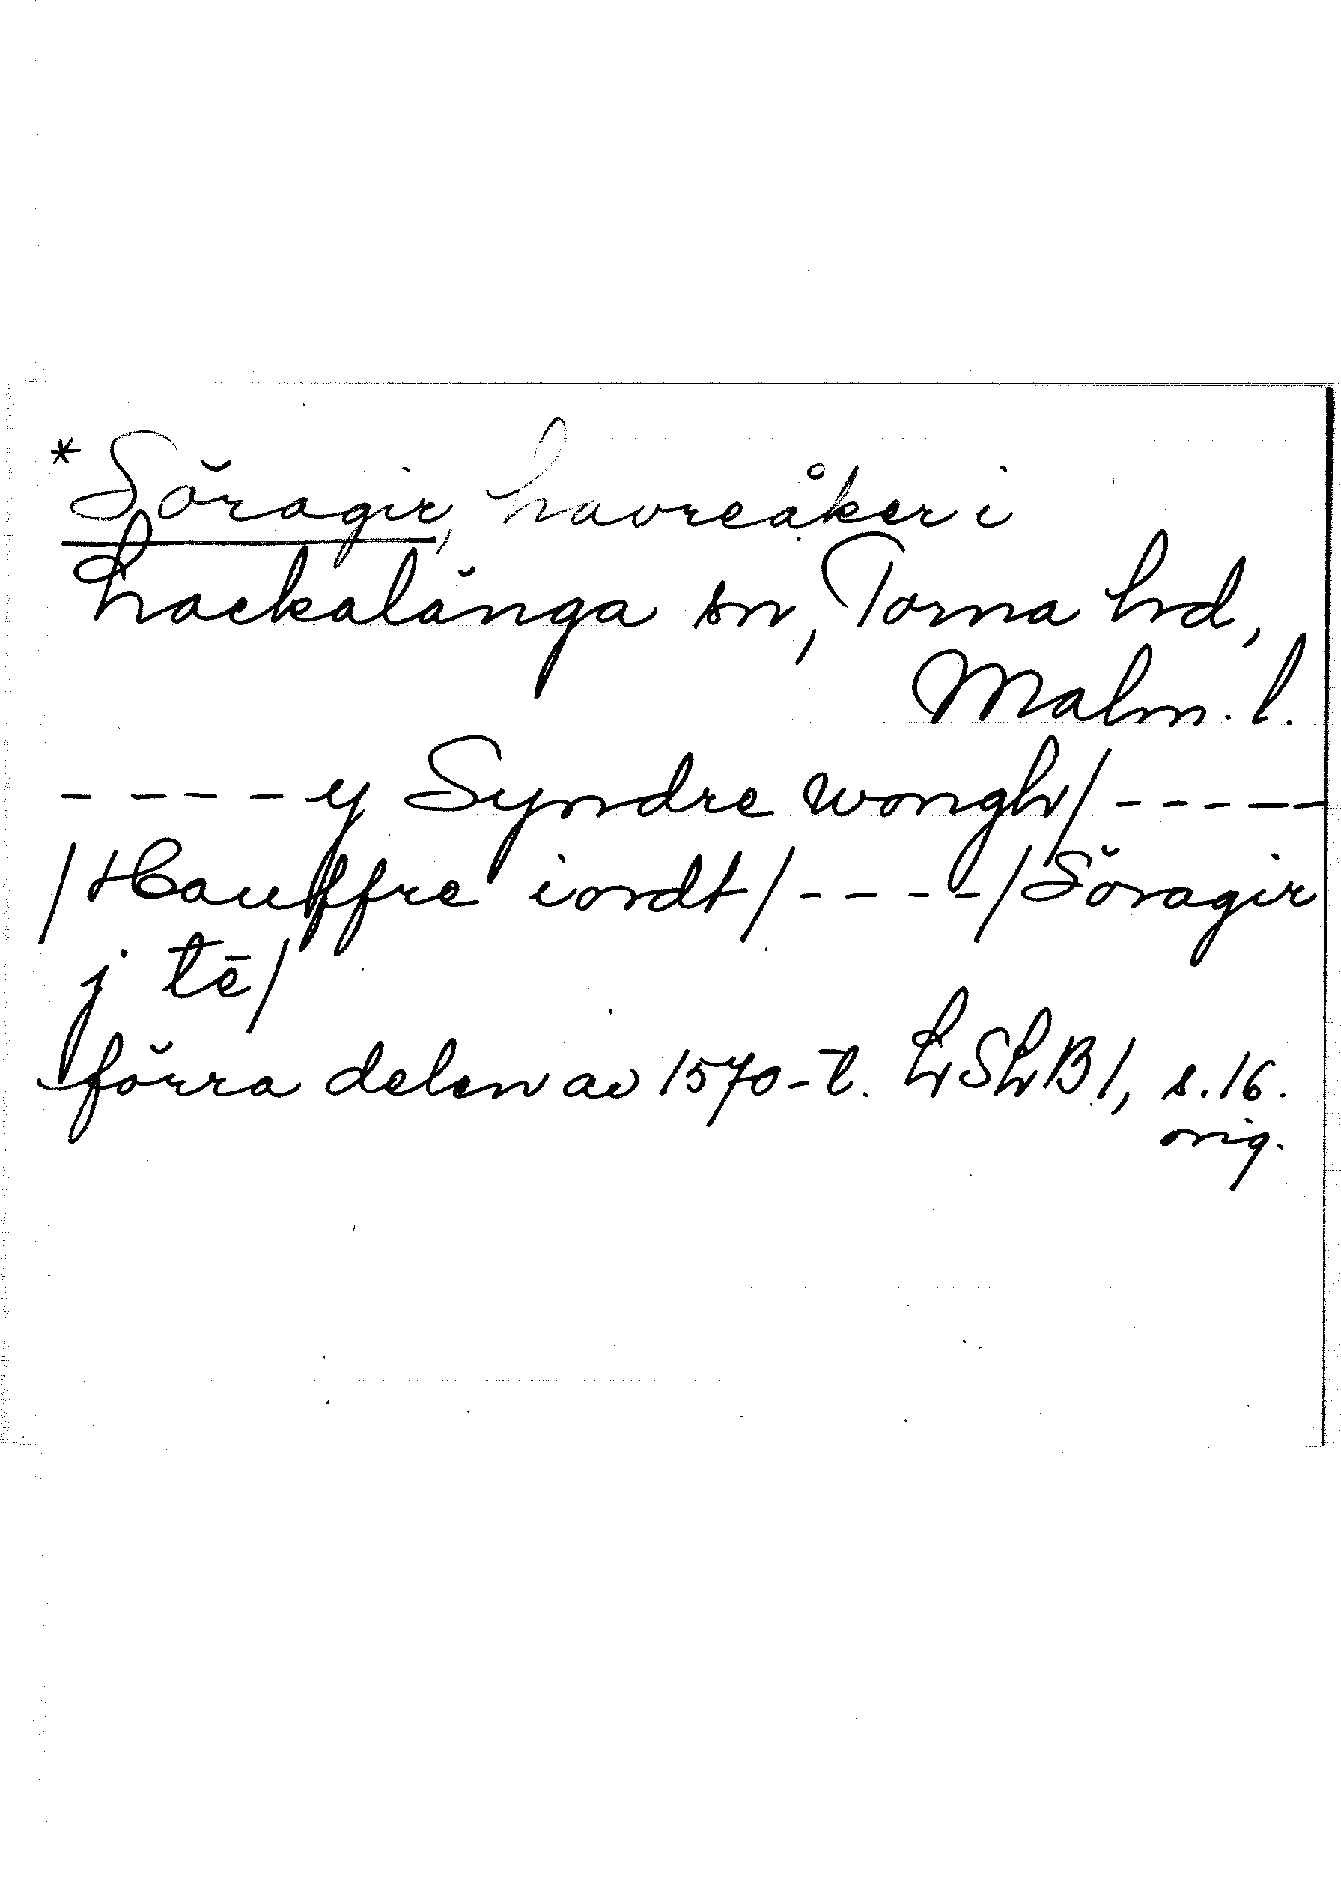 *Söragir, havreåker i
Hackalänga sn, Torna hd,
Malm. l.
- - - - y Syndre wongh/ - - - - -
/Hauffre iordt/ - - - - /Söragir
j tē/
förra delen av 1570-t. LSLB 1, s. 16.
orig.